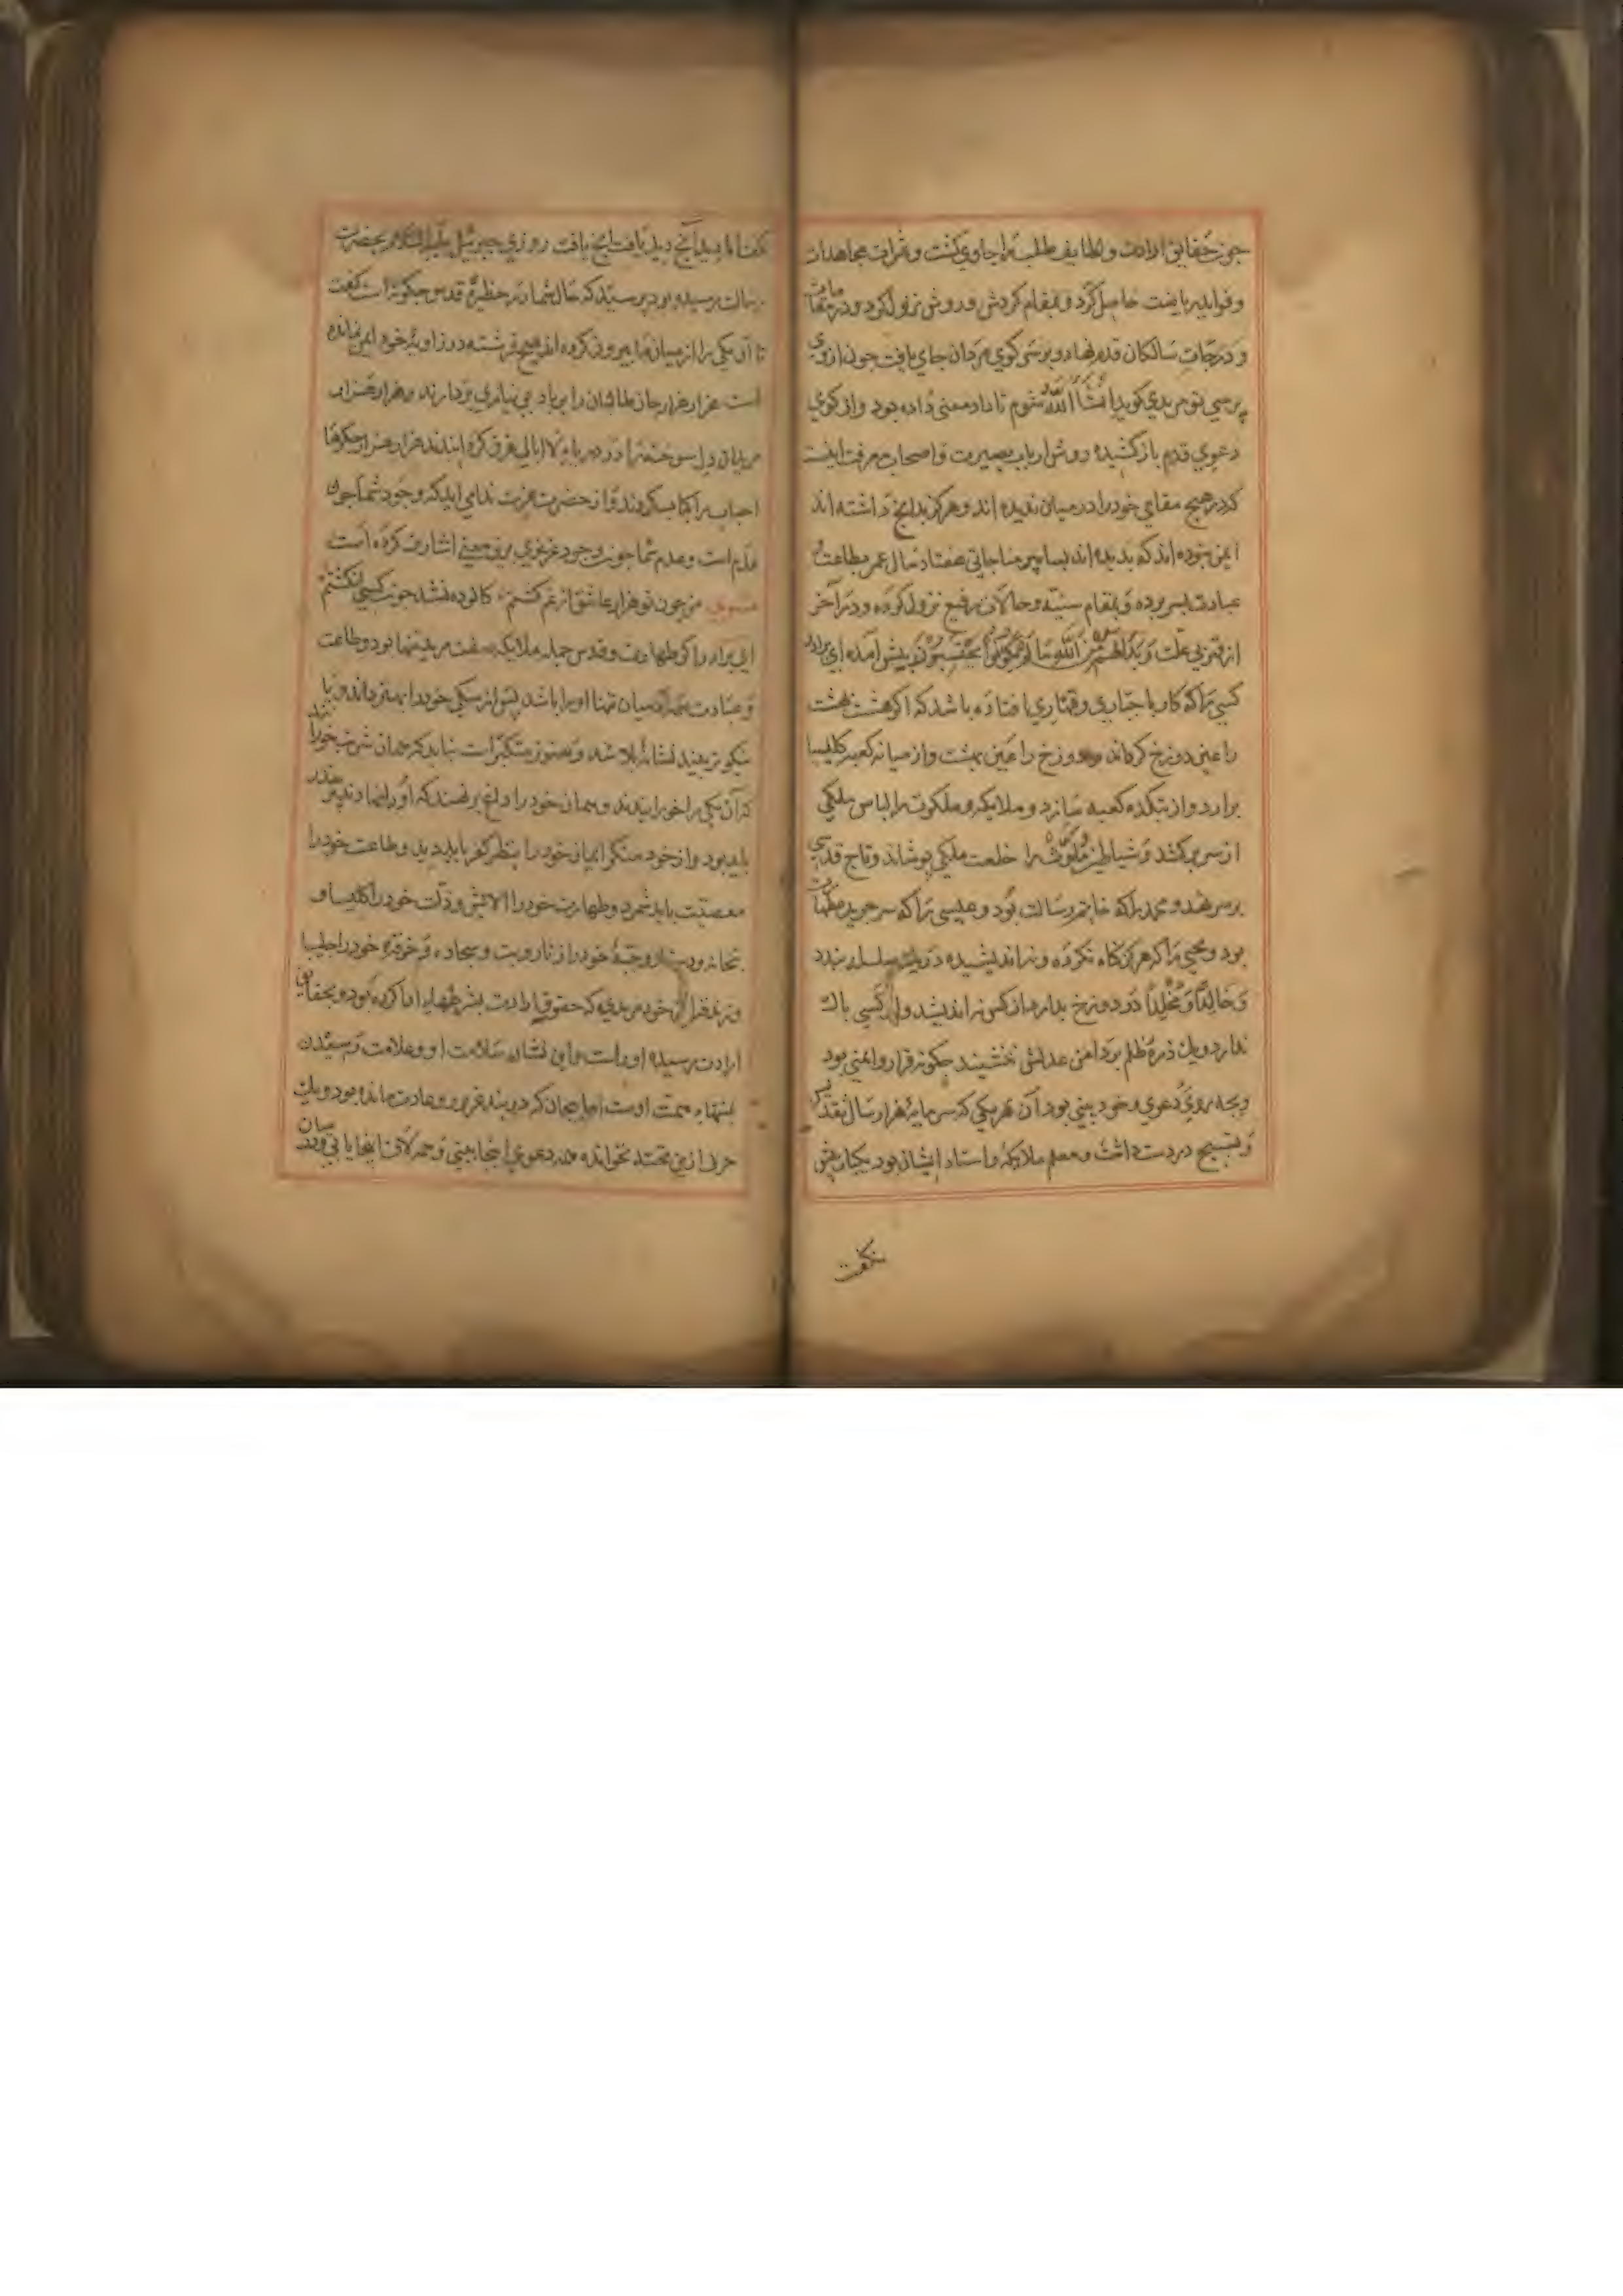 چون حقایق ارادت و لطایف طلب را حاوی گشت و ثمرات مجاهدات
و فواید ریاضت حاصل کرد و بمقام گردش و روش نزول کرد و در مقامات
و درجات سالکان قدم نهاد و بر سر کوی مردان جای یافت چون از وی
پرسی تو مریدی گوید انشا الله شوم تا داد معنی داده بود و از کوی
دعوی قدم باز کشیده روش ارباب بصیرت و اصحاب معرفت اینست
که در هیچ مقامی خود را در میان ندیده اند و هرگز بدانچ داشته اند
ایمن نبوده اند که بدیده اند بسا پیر مناجاتی هفتاد سال عمر بطاعت و
عبادت بسر برده و بمقام سنیه و حالات رفیع نزول کرده و در آخر
از قهر بی علت وَبَدَا لَهُمْ مِنَ اللّٰهِ مَا لَمْ يَكُونُوا يَحْتَسِبُونَ پیش آمده ای برادر
کسی را که کار با جباری و قهاری افتاده باشد که اگر هشت بهشت
را عین دوزخ گرداند و دوزخ را عین بهشت و از میانه کعبه کلیسا
برارد و از بتکده کعبه سازد و ملایکه و ملکوت را لباس ملکی
از سر برکشد و شیاطین را خلعت ملکی پوشاند و تاج قدسی
بر سر نهد و محمد را که خاتم رسالت بود و عیسی را که سر جریده طهارت
بود و یحیی را که هرگز گناه نکرده و نه اندیشیده در یک سلسله بندد
و خالدا و مخلدا در دوزخ بدارد از کس نه اندیشد و از کسی باک
ندارد و یک ذره ظلم بر دامن عدلش ننشیند چگونه قرار و ایمنی بود
و چه روی دعوی و خود بینی بود آن هر یکی که سرمایه هزار سال تقدیس
و تسبیح در دست داشت و معلم ملایکه و استاد ایشان بود یکبار بیش
نگفت
نگفت انا دید آنچ دید یافت آنچ یافت روزی جبرئیل علیه السلام بحضرت
رسالت رسیده بود پرسید که حال شما در حظیرهٔ قدس چگونه است گفت
تا آن یکی را از میان ما بیرون کرده اند هیچ فرشته در زاویهٔ خود ایمن نمانده
است هزار هزار جان طالبان را بر باد بی نیازی بردارند و هزار هزار
مریدان دل سوخته را در دریای لا ابالی غرق کرده اند هزار هزار جگرها
احباب را کباب کردند و از حضرت عزت ندا می اید که وجود شما چون
عدم است و عدم شما چون وجود عزیزی برین معنی اشارت کرده است
مثنوی من چون تو هزار عاشق از غم کشتم کالوده نشد خون کسی انگشتم
ای برادر اگر طهارت و قدس جمله ملایکه صفت مرید تنها بود و طاعت
و عبادت همه آدمیان تنها او را باشد پس از سگی خود را بهتر داند و یا
نیکوتر بیند نشانهٔ بلا شد و هنوز متکبر است نباید که همان شربت خورد
که آن یکی را خورانیدند و همان خود را داغ برنهند که او را نهادند پر حذر
باید بود و از خود منکر ایمان خود را بنظر کفر باید دید و طاعت خود را
معصیت باید شمرد و طهارت خود را الایش و ذلت خود را کلیسا و
بتخانه و دستار و جبهٔ خود را زنار و بت و سجاده و خرقهٔ خود را چلیپا
خود مریدی که حقوق ارادت بشرطها ادا کرده بود و بحقایق
ارادت رسیده او راست و این نشان سلامت او و علامت رسیدن
بمنتهاء همت اوست اما بیجان که در بند غرور و عادت مانده بود و یک
حرف ازین تخته نخوانده همه دعوی اینجا بینی و همه لاف اینجا یابی